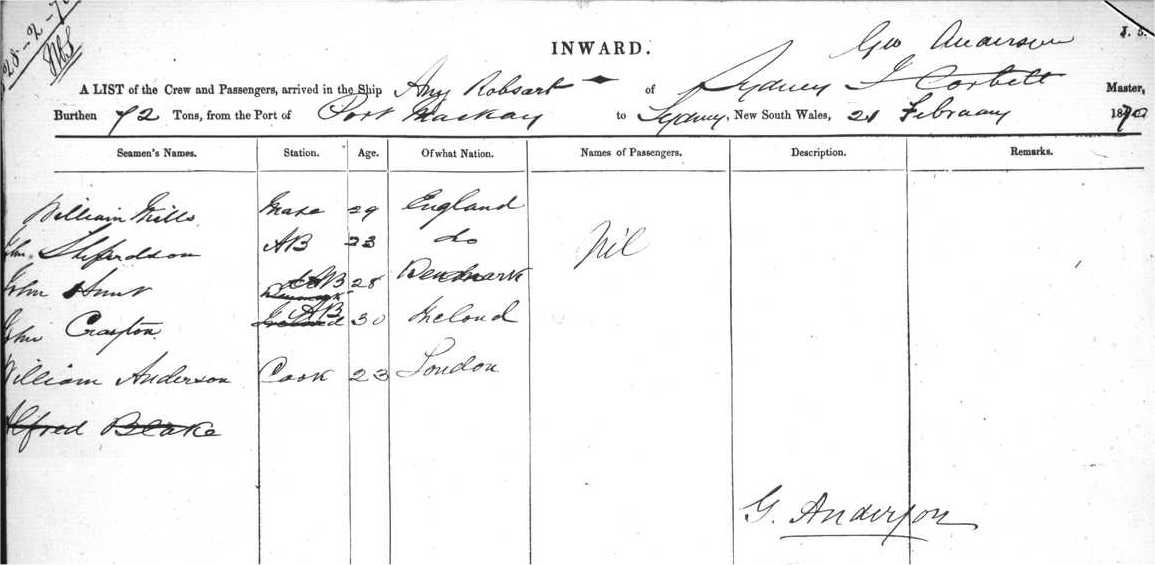 28-2-70
INWARD.
Geo Anderson
J. 5.
A LIST of the Crew and Passengers, arrived in the Ship Amy Robsart of Sydney Corbett Master,
Burthen 72 Tons, from the Port of Port Mackay to Sydney, New South Wales, 21 February 1870
Seamen's Names. Station. Age. Of what Nation. Names of Passengers. Description. Remarks.
William Mills Mate 29 England
John Sheperdson AB 23 do Nil
John Hunt AB 28 Denmark
John Crayton AB 30 Ireland
William Anderson Cook 23 London
Alfred Blake
G. Anderson